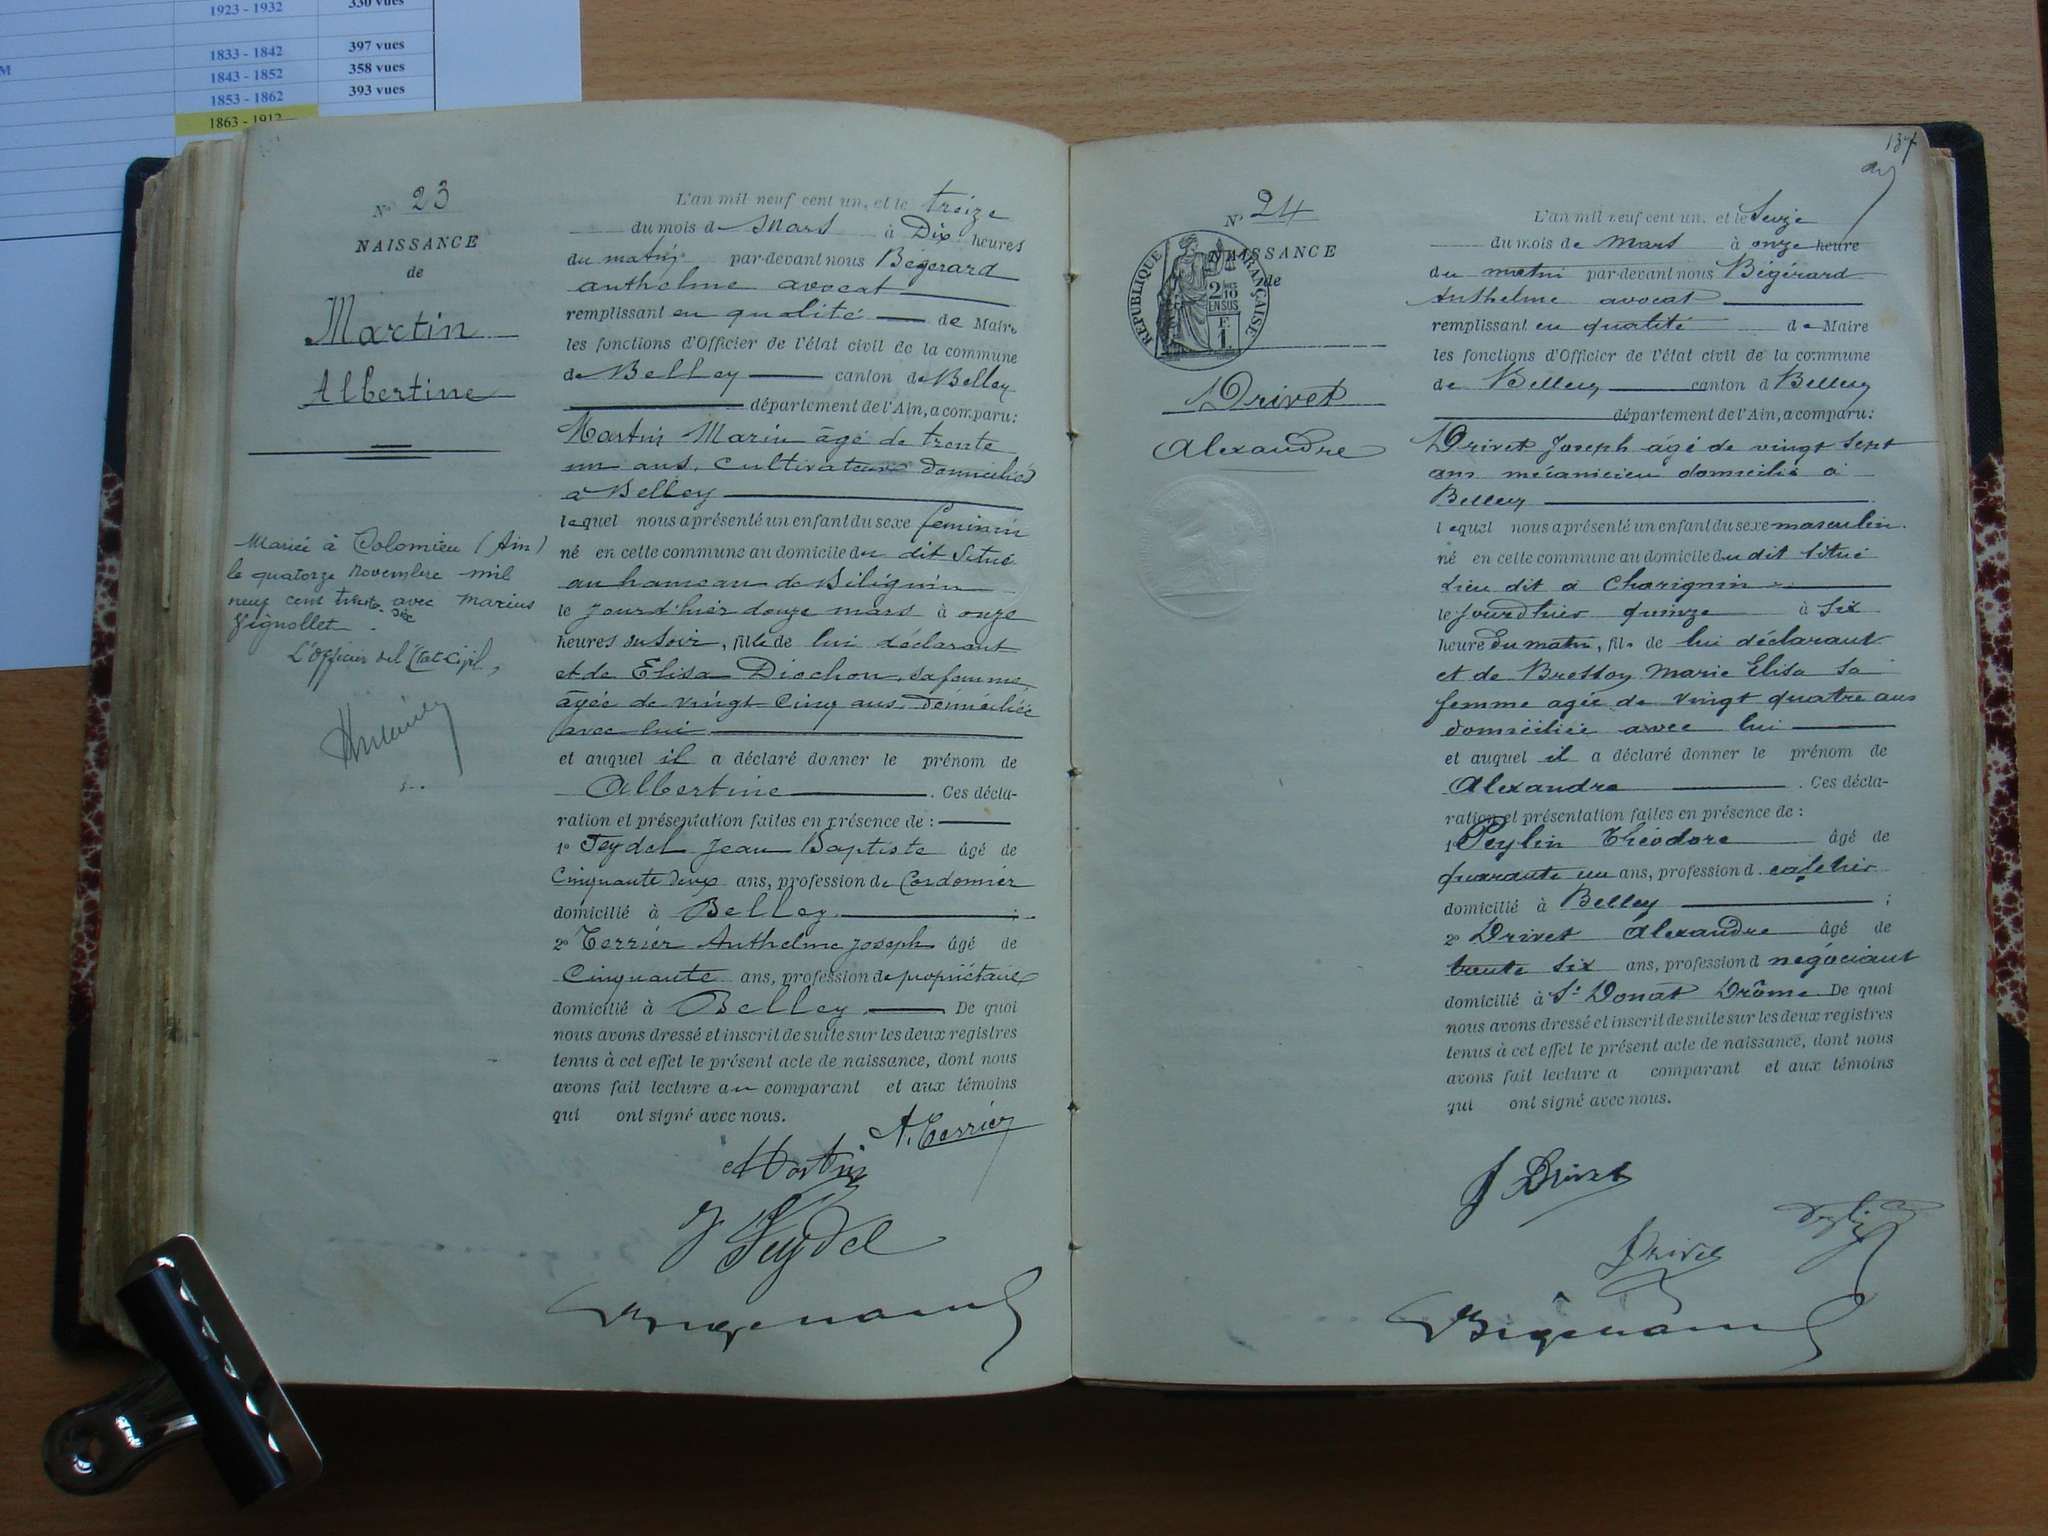 1923 - 1932 330 vues
1833 - 1842 397 vues
M 1843 - 1852 358 vues
1853 - 1862 393 vues
1863 - 1912
N° 23
NAISSANCE
de
Martin
Albertine
Mariée à Colomieu (Ain)
le quatorze novembre mil
neuf cent avec Marius
Vignollet.
L'Officier de l'Etat Civil,
L'an mil neuf cent un, et le treize
du mois de Mars à Dix heures
du matin par-devant nous Begerard
anthelme avocat
remplissant en qualité de Maire
les fonctions d'Officier de l'état civil de la commune
de Belley canton de Belley
département de l'Ain, a comparu:
Martin Marin âgé de trente
un ans, cultivateur domicilié
à Belley
lequel nous a présenté un enfant du sexe feminin
né en cette commune au domicile du dit situé
au hameau de Bilignin
le jour d'hier douze mars à onze
heures du soir, fille de lui déclarant
et de Elisa Diochon, sa femme
âgée de vingt cinq ans, domiciliée
avec lui
et auquel il a déclaré donner le prénom de
Albertine . Ces décla-
ration et présentation faites en présence de :
1° Feydel Jean Baptiste âgé de
Cinquante deux ans, profession de Cordonnier
domicilié à Belley ;
2° Terrier Anthelme Joseph âgé de
Cinquante ans, profession de propriétaire
domicilié à Belley De quoi
nous avons dressé et inscrit de suite sur les deux registres
tenus à cet effet le présent acte de naissance, dont nous
avons fait lecture au comparant et aux témoins
qui ont signé avec nous.
A. Terrier
Martin
J Feydel
Begerard
137
N° 24
NAISSANCE
de
RÉPUBLIQUE FRANÇAISE
2/10 EN SUS
Drivet
Alexandre
L'an mil neuf cent un, et le Seize
du mois de mars à onze heure
du matin par-devant nous Bégérard
Anthelme avocat
remplissant en qualité de Maire
les fonctions d'Officier de l'état civil de la commune
de Belley canton d Belley
département de l'Ain, a comparu:
Drivet Joseph âgé de vingt sept
ans mécanicien domicilié à
Belley
lequel nous a présenté un enfant du sexe masculin
né en cette commune au domicile du dit situé
Lieu dit à Charignin
le jourdhier quinze à six
heure du matin, fils de lui déclarant
et de Bresson Marie Elisa sa
femme agée de vingt quatre ans
domiciliée avec lui
et auquel il a déclaré donner le prénom de
Alexandre . Ces décla-
ration et présentation faites en présence de :
1° Peylin Théodore âgé de
quarante un ans, profession d cafetier
domicilié à Belley ;
2° Drivet Alexandre âgé de
trente six ans, profession d négociant
domicilié à St Donat Drôme De quoi
nous avons dressé et inscrit de suite sur les deux registres
tenus à cet effet le présent acte de naissance, dont nous
avons fait lecture a comparant et aux témoins
qui ont signé avec nous.
J Drivet
Drivet
Bégérard